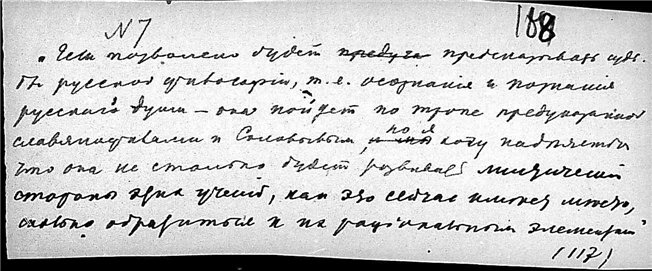 N 7
188
„Если позволено будет предсказывать судь-
бы русской философіи, т.е. осознанія и познанія
русскаго духа — она пойдет по тропе предуказанной
славянофилами и Соловьевым, но я хочу надеяться
что она не столько будет развивать мистический
стороны этих учений, как это сейчас имеет место,
сколько обратится и к рациональным элементам"
(117)